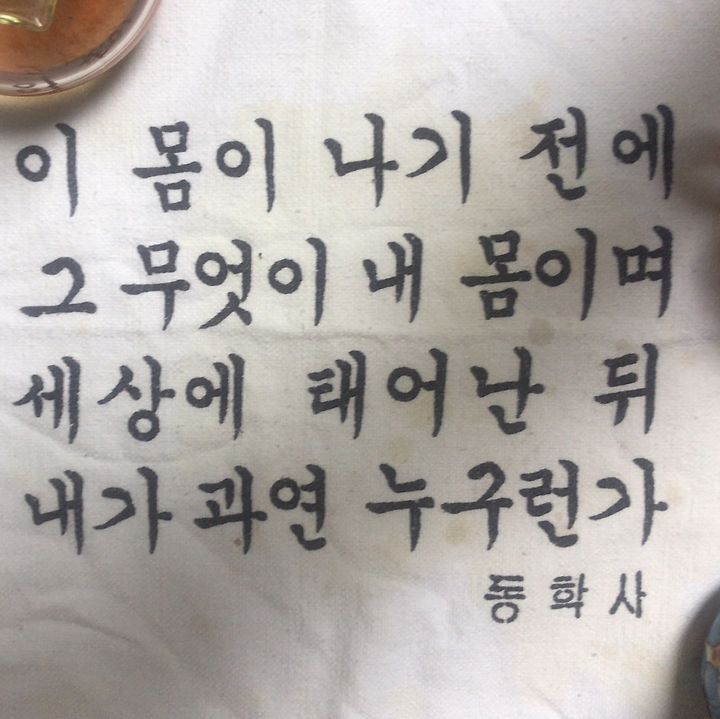 이 몸이 나기 전에
그 무엇이 내 몸이며
세상에 태어난 뒤
내가 과연 누구런가
동학사